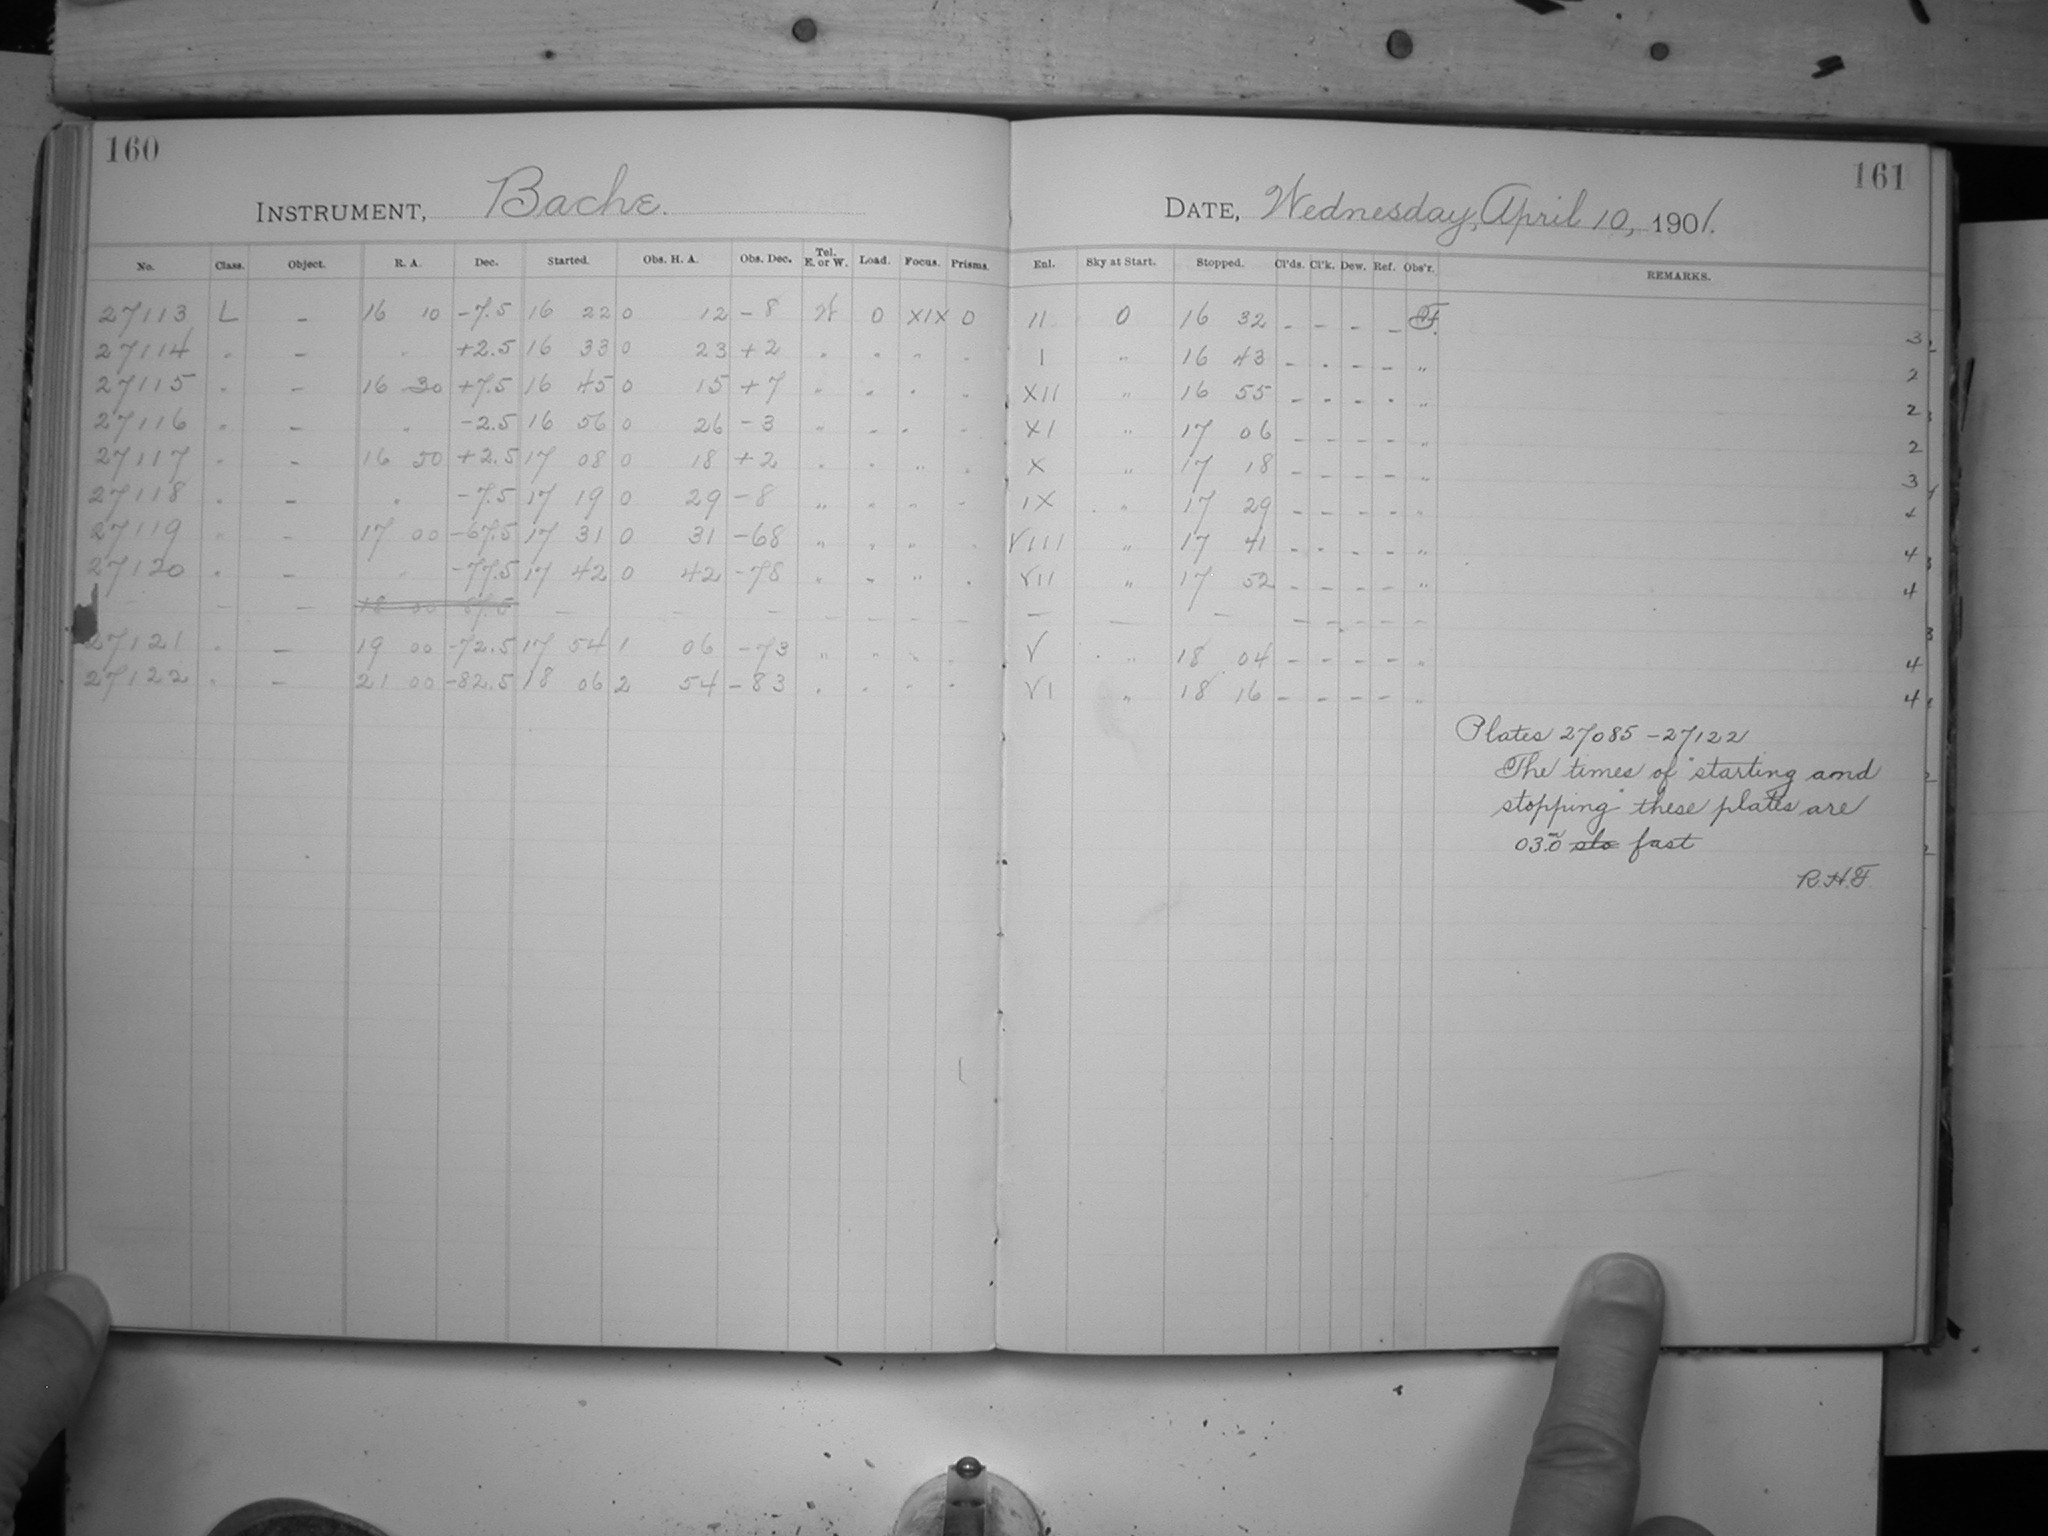 160
161
INSTRUMENT, Bache.
DATE, Wednesday, April 10, 1901.
No. Class. Object. R. A. Dec. Started. Obs. H. A. Obs. Dec. Tel. E. or W. Load. Focus. Prisms. Enl. Sky at Start. Stopped. Cl'ds. Cl'k. Dew. Ref. Obs'r. REMARKS.
27113 L – 16 10 –7.5 16 22 0 12 –8 W 0 XIX 0 II 0 16 32 – – – – F. 3
27114 " – " +2.5 16 33 0 23 +2 " " " " I " 16 43 – – – – " 2
27115 " – 16 30 +7.5 16 45 0 15 +7 " " " " XII " 16 55 – – – – " 2
27116 " – " –2.5 16 56 0 26 –3 " " " " XI " 17 06 – – – – " 2
27117 " – 16 50 +2.5 17 08 0 18 +2 " " " " X " 17 18 – – – – " 3
27118 " – " –7.5 17 19 0 29 –8 " " " " IX " 17 29 – – – – "
27119 " – 17 00 –67.5 17 31 0 31 –68 " " " " VIII " 17 41 – – – – " 4
27120 " – " –77.5 17 42 0 42 –78 " " " " VII " 17 52 – – – – " 4
– – – 18 00 87.5 – – – – – – – – – – – – – – –
27121 " – 19 00 –72.5 17 54 1 06 –73 " " " " V " 18 04 – – – – " 4
27122 " – 21 00 –82.5 18 06 2 54 –83 " " " " VI " 18 16 – – – – " 4
Plates 27085 – 27122
The times of "starting and
stopping" these plates are
03.m0 slo fast
R.H.F